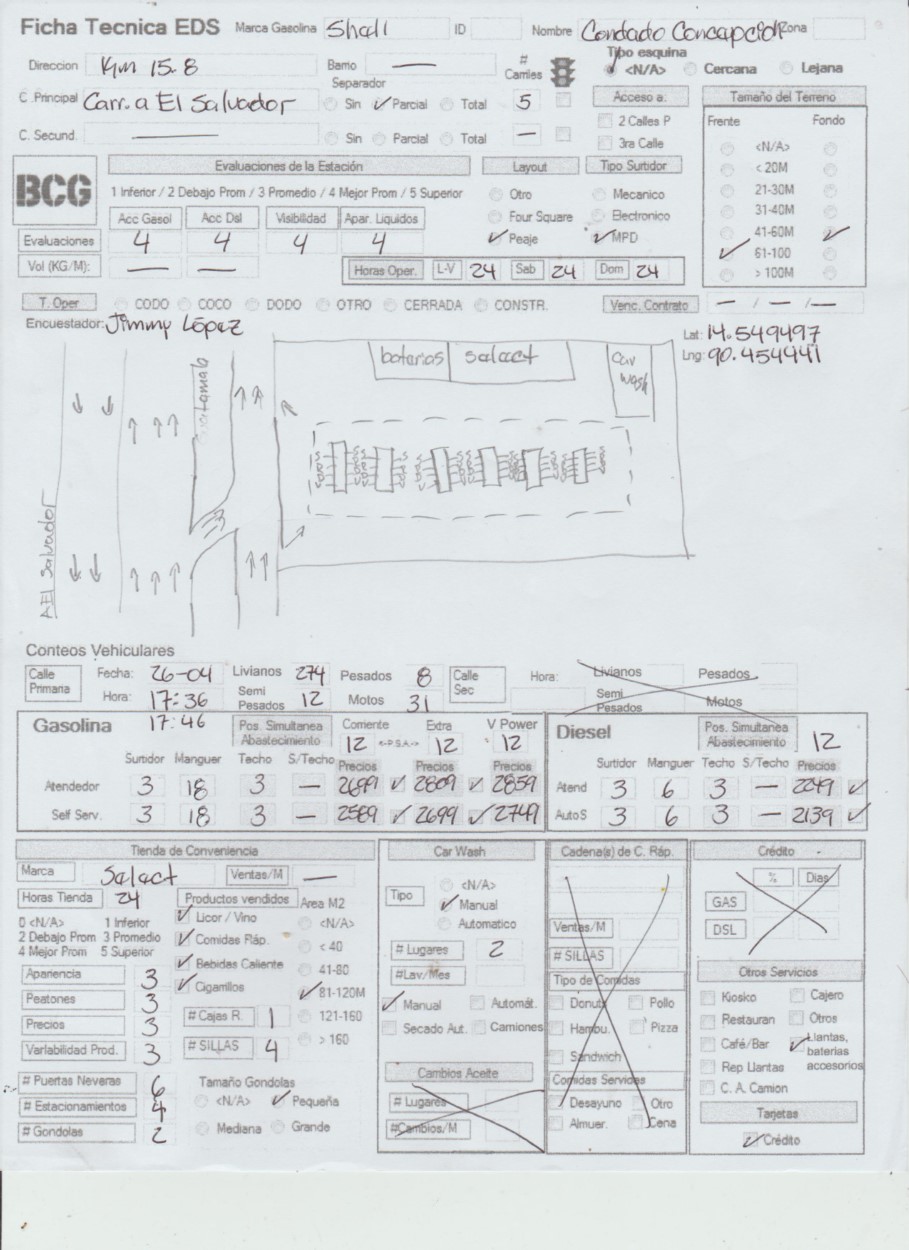 Ficha Tecnica EDS Marca Gasolina Shell ID Nombre Condado Concepción Zona
Direccion Km 15.8 Barrio — # Carriles Tipo esquina <N/A> Cercana Lejana
Separador
C .Principal Carr. a El Salvador Sin Parcial Total 5 Acceso a: Tamaño del Terreno
C. Secund. — Sin Parcial Total — 2 Calles P Frente Fondo
3ra Calle <N/A>
BCG Evaluaciones de la Estación Layout Tipo Surtidor < 20M
1 Inferior / 2 Debajo Prom / 3 Promedio / 4 Mejor Prom / 5 Superior Otro Mecanico 21-30M
Acc Gasol Acc Dsl Visibilidad Apar. Liquidos Four Square Electronico 31-40M
Evaluaciones 4 4 4 4 Peaje MPD 41-60M
61-100
Vol (KG/M): — — Horas Oper. L-V 24 Sab 24 Dom 24 > 100M
T. Oper CODO COCO DODO OTRO CERRADA CONSTR. Venc. Contrato — / — / —
Encuestador: Jimmy López Lat: 14.549497
Lng: 90.454441
baterias select Car wash
Guatemala
A El Salvador
Conteos Vehiculares
Calle Primaria Fecha: 26-04 Livianos 274 Pesados 8 Calle Sec Hora: Livianos Pesados
Hora: 17:36 Semi Pesados 12 Motos 31 Semi Pesados Motos
17:46
Gasolina Pos. Simultanea Abastecimiento Corriente 12 <-P.S.A.-> Extra 12 V Power 12 Diesel Pos. Simultanea Abastecimiento 12
Surtidor Manguer Techo S/Techo Precios Precios Precios Surtidor Manguer Techo S/Techo Precios
Atendedor 3 18 3 — 2699 2809 2859 Atend 3 6 3 — 2249
Self Serv. 3 18 3 — 2589 2699 2749 AutoS 3 6 3 — 2139
Tienda de Conveniencia Car Wash Cadena(s) de C. Ráp. Crédito
Marca Select Ventas/M — <N/A> % Dias
Horas Tienda 24 Productos vendidos Area M2 Tipo Manual GAS
0 <N/A> 1 Inferior Licor / Vino <N/A> Automatico Ventas/M DSL
2 Debajo Prom 3 Promedio Comidas Ráp. < 40 # Lugares 2 # SILLAS
4 Mejor Prom 5 Superior Bebidas Caliente 41-80 #Lav/Mes Tipo de Comidas Otros Servicios
Apariencia 3 Cigarrillos 81-120M Manual Automát. Donut Pollo Kiosko Cajero
Peatones 3 # Cajas R. 1 121-160 Secado Aut. Camiones Hambu. Pizza Restauran Otros
Precios 3 # SILLAS 4 > 160 Sandwich Café/Bar Llantas, baterias accesorios
Variabilidad Prod. 3 Cambios Aceite Comidas Servidas Rep Llantas
# Puertas Neveras 6 Tamaño Gondolas # Lugares Desayuno Otro C. A. Camion
# Estacionamientos 4 <N/A> Pequeña #Cambios/M Almuer. Cena Tarjetas
# Gondolas 2 Mediana Grande Crédito